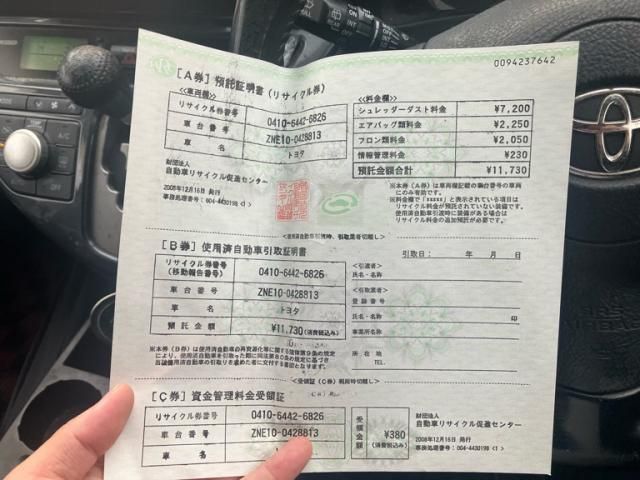 0094237642
[A券] 預託証明書(リサイクル券)
<<車両欄>>
リサイクル券番号 0410-6442-6826
車台番号 ZNE10-0428813
車名 トヨタ
財団法人
自動車リサイクル促進センター
2008年12月16日 発行
事務処理番号: 004-4430198 <1>
<<料金欄>>
シュレッダーダスト料金 ¥7,200
エアバッグ類料金 ¥2,250
フロン類料金 ¥2,050
情報管理料金 ¥230
預託金額合計 ¥11,730
※本券(A券)は車両欄記載の車台番号の車両
にのみ有効です。
※料金欄で「xxxxx」と表示されている項目は
リサイクル料金が預託されていない装備です。
使用済自動車引渡時に装備がある場合は
リサイクル料金の追加預託が必要です。
<使用済自動車引渡時、引取業者切離し>
[B券] 使用済自動車引取証明書
引取日: 年 月 日
リサイクル券番号
(移動報告番号) 0410-6442-6826
車台番号 ZNE10-0428813
車名 トヨタ
預託金額 ¥11,730(消費税込み)
<引渡者>
氏名・名称
<引取業者>
登録番号
氏名・名称 印
事業所名称
所在地
TEL
<受領証(C券)利用時切離し>
[C券] 資金管理料金受領証
リサイクル券番号 0410-6442-6826
車台番号 ZNE10-0428813
トヨタ
受領金額 ¥380
(消費税込み)
財団法人
自動車リサイクル促進センター
2008年12月16日 発行
事務処理番号: 004-4430198 <1>
TOYOTA
INT
OFF
A/C